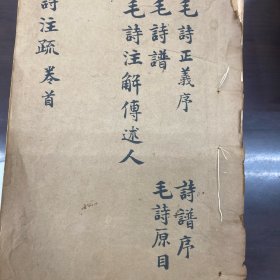 毛詩正義序
毛詩譜
毛詩注解傳述人
詩譜序
毛詩原目
詩注疏 卷首